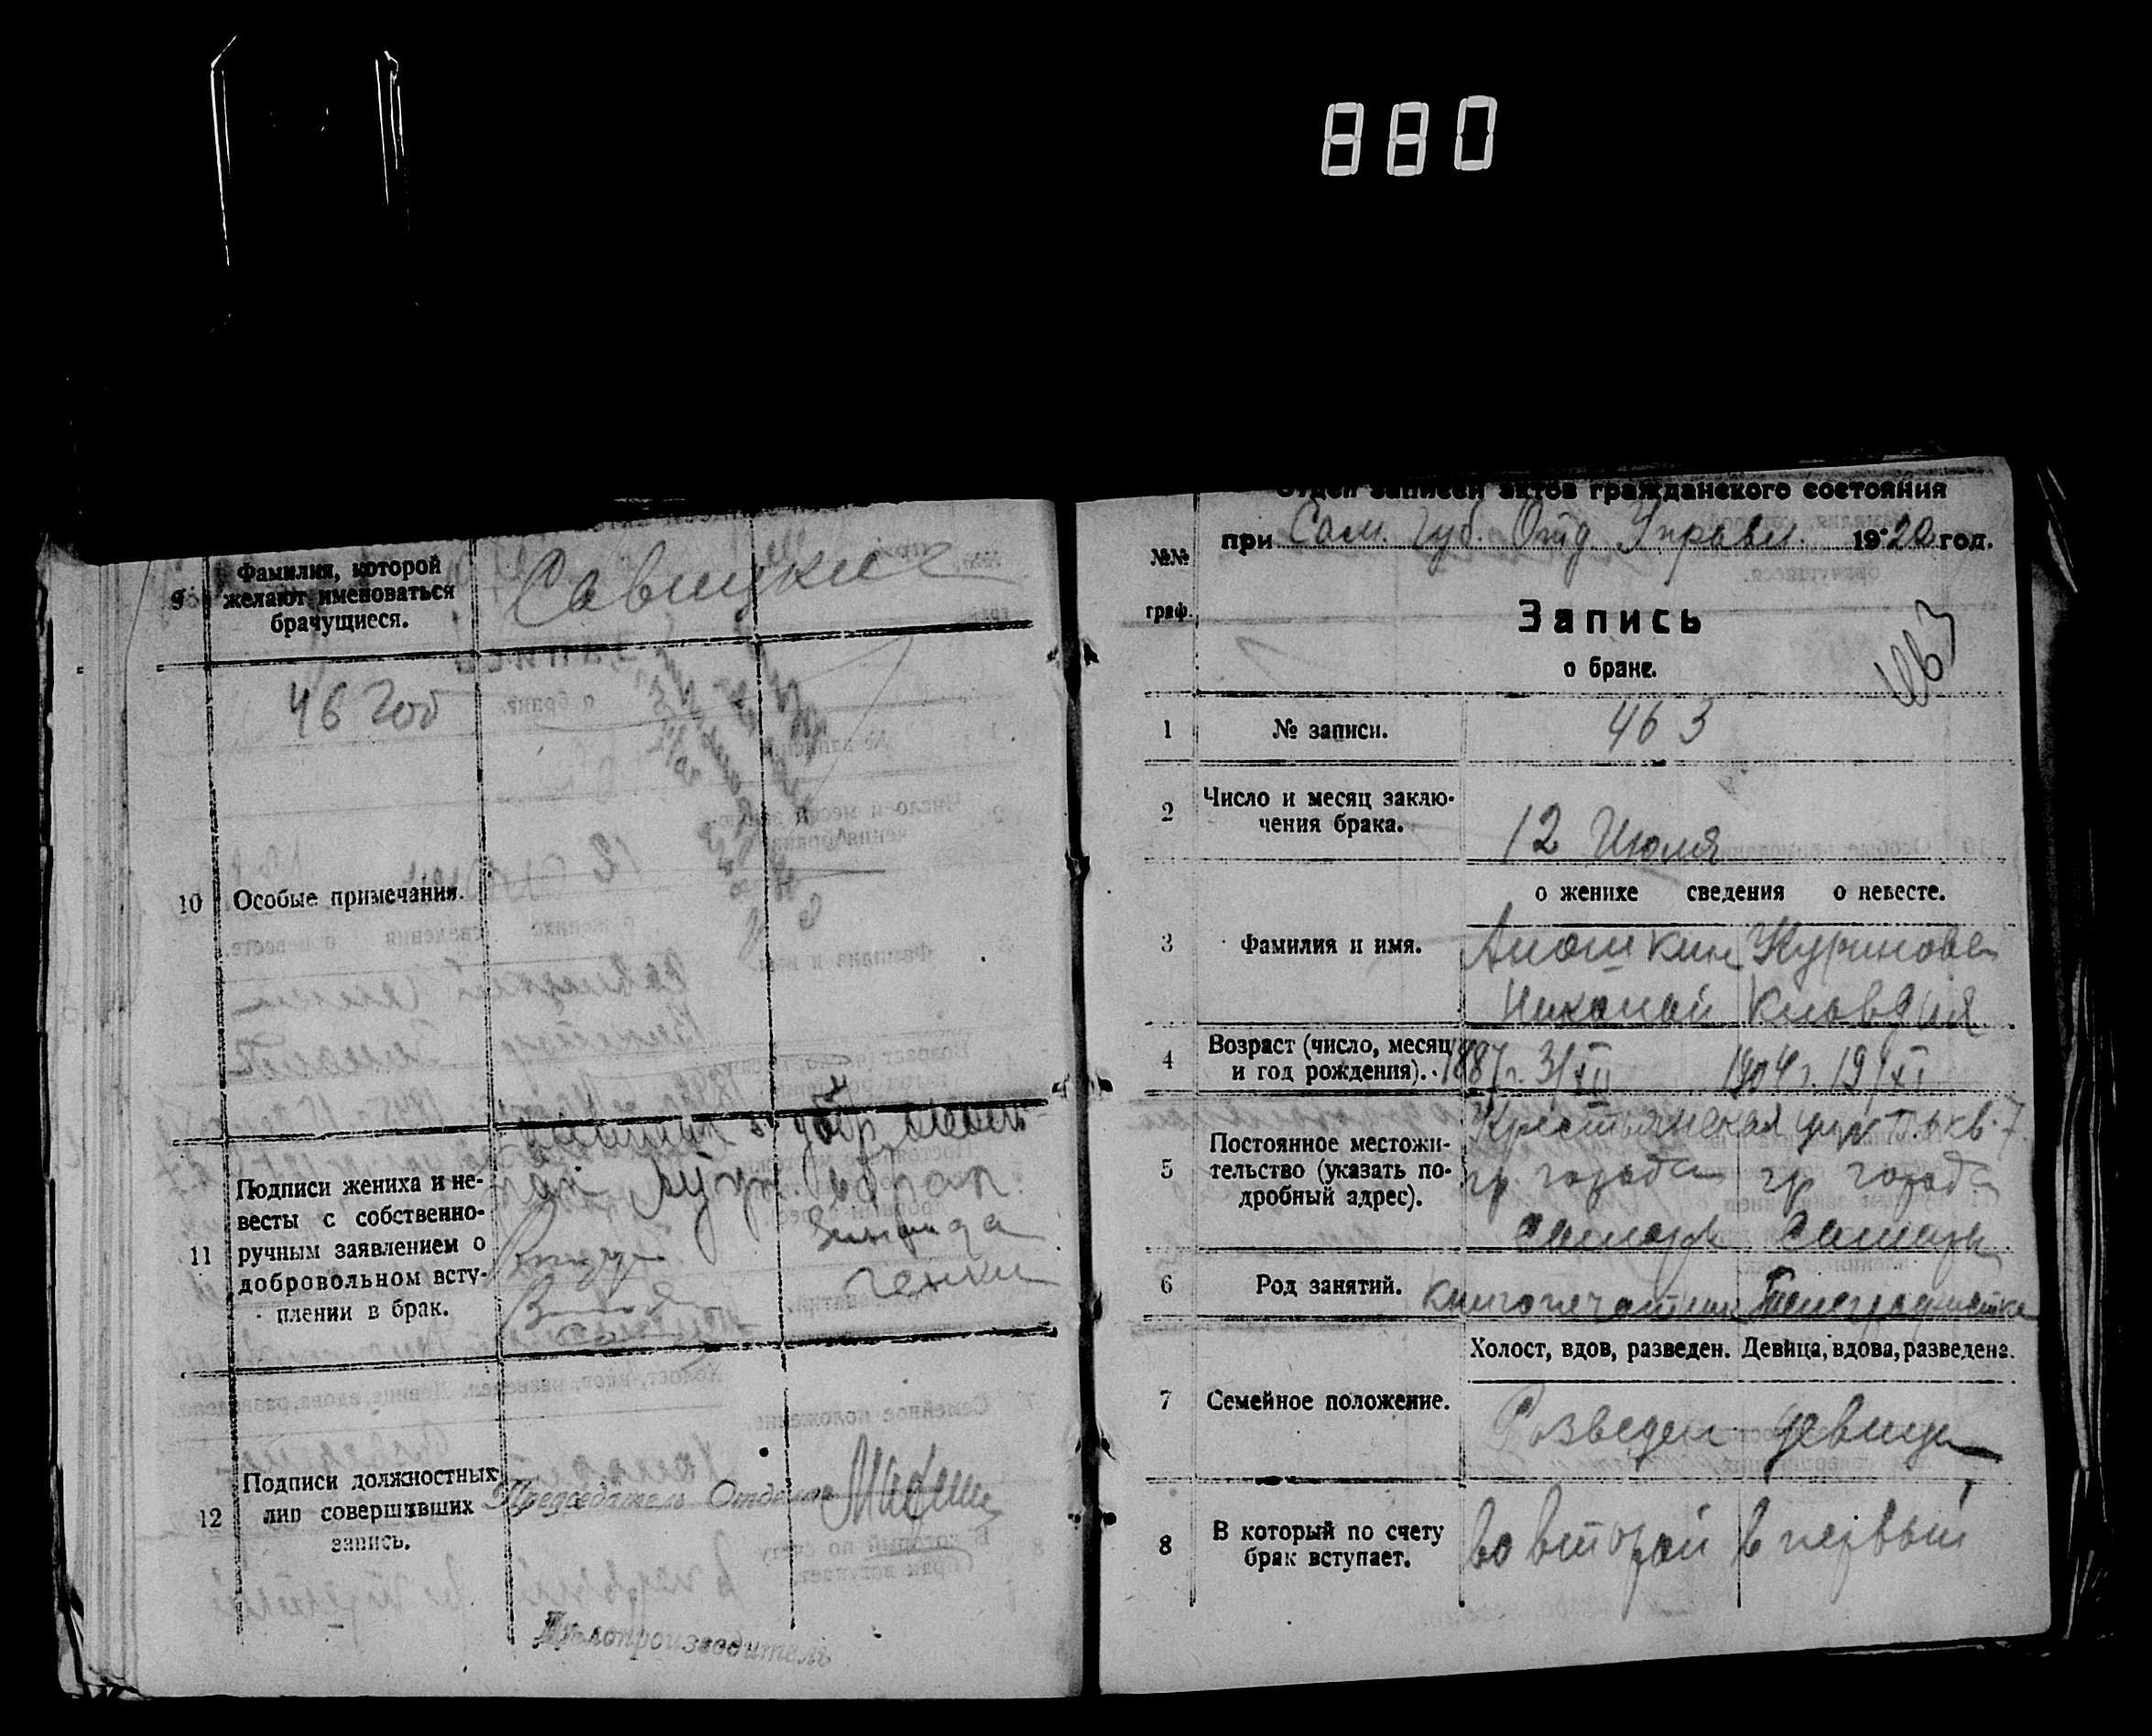 880
9
Фамилия, которой
желают именоваться
брачущиеся.
Савицкие
46 год
10
Особые примечания.
11
Подписи жениха и не-
весты с собственно-
ручным заявлением о
добровольном всту-
плении в брак.
Зинаида
12
Подписи должностных
лиц совершивших
запись.
Председатель Отдела
Делопроизводитель
Отдел записей актов гражданского состояния
при Сам. Губ. Отд. Управл. 1920 год.
№№
граф.
Запись
о браке.
463
1
№ записи.
463
2
Число и месяц заклю-
чения брака.
12 Июля
о женихе сведения о невесте.
3
Фамилия и имя.
Аношкин
Николай Клавдия
4
Возраст (число, месяц
и год рождения).
1887 г. 3/XII 1904 г. 19/XI
5
Постоянное местожи-
тельство (указать по-
дробный адрес).
Крестьянская кв. 7
гр. города гр. города
Самары Самары
6
Род занятий.
книгопечатник Телеграфистка
Холост, вдов, разведен. Девица, вдова, разведена.
7
Семейное положение.
Разведен девица
8
В который по счету
брак вступает.
во второй в первый